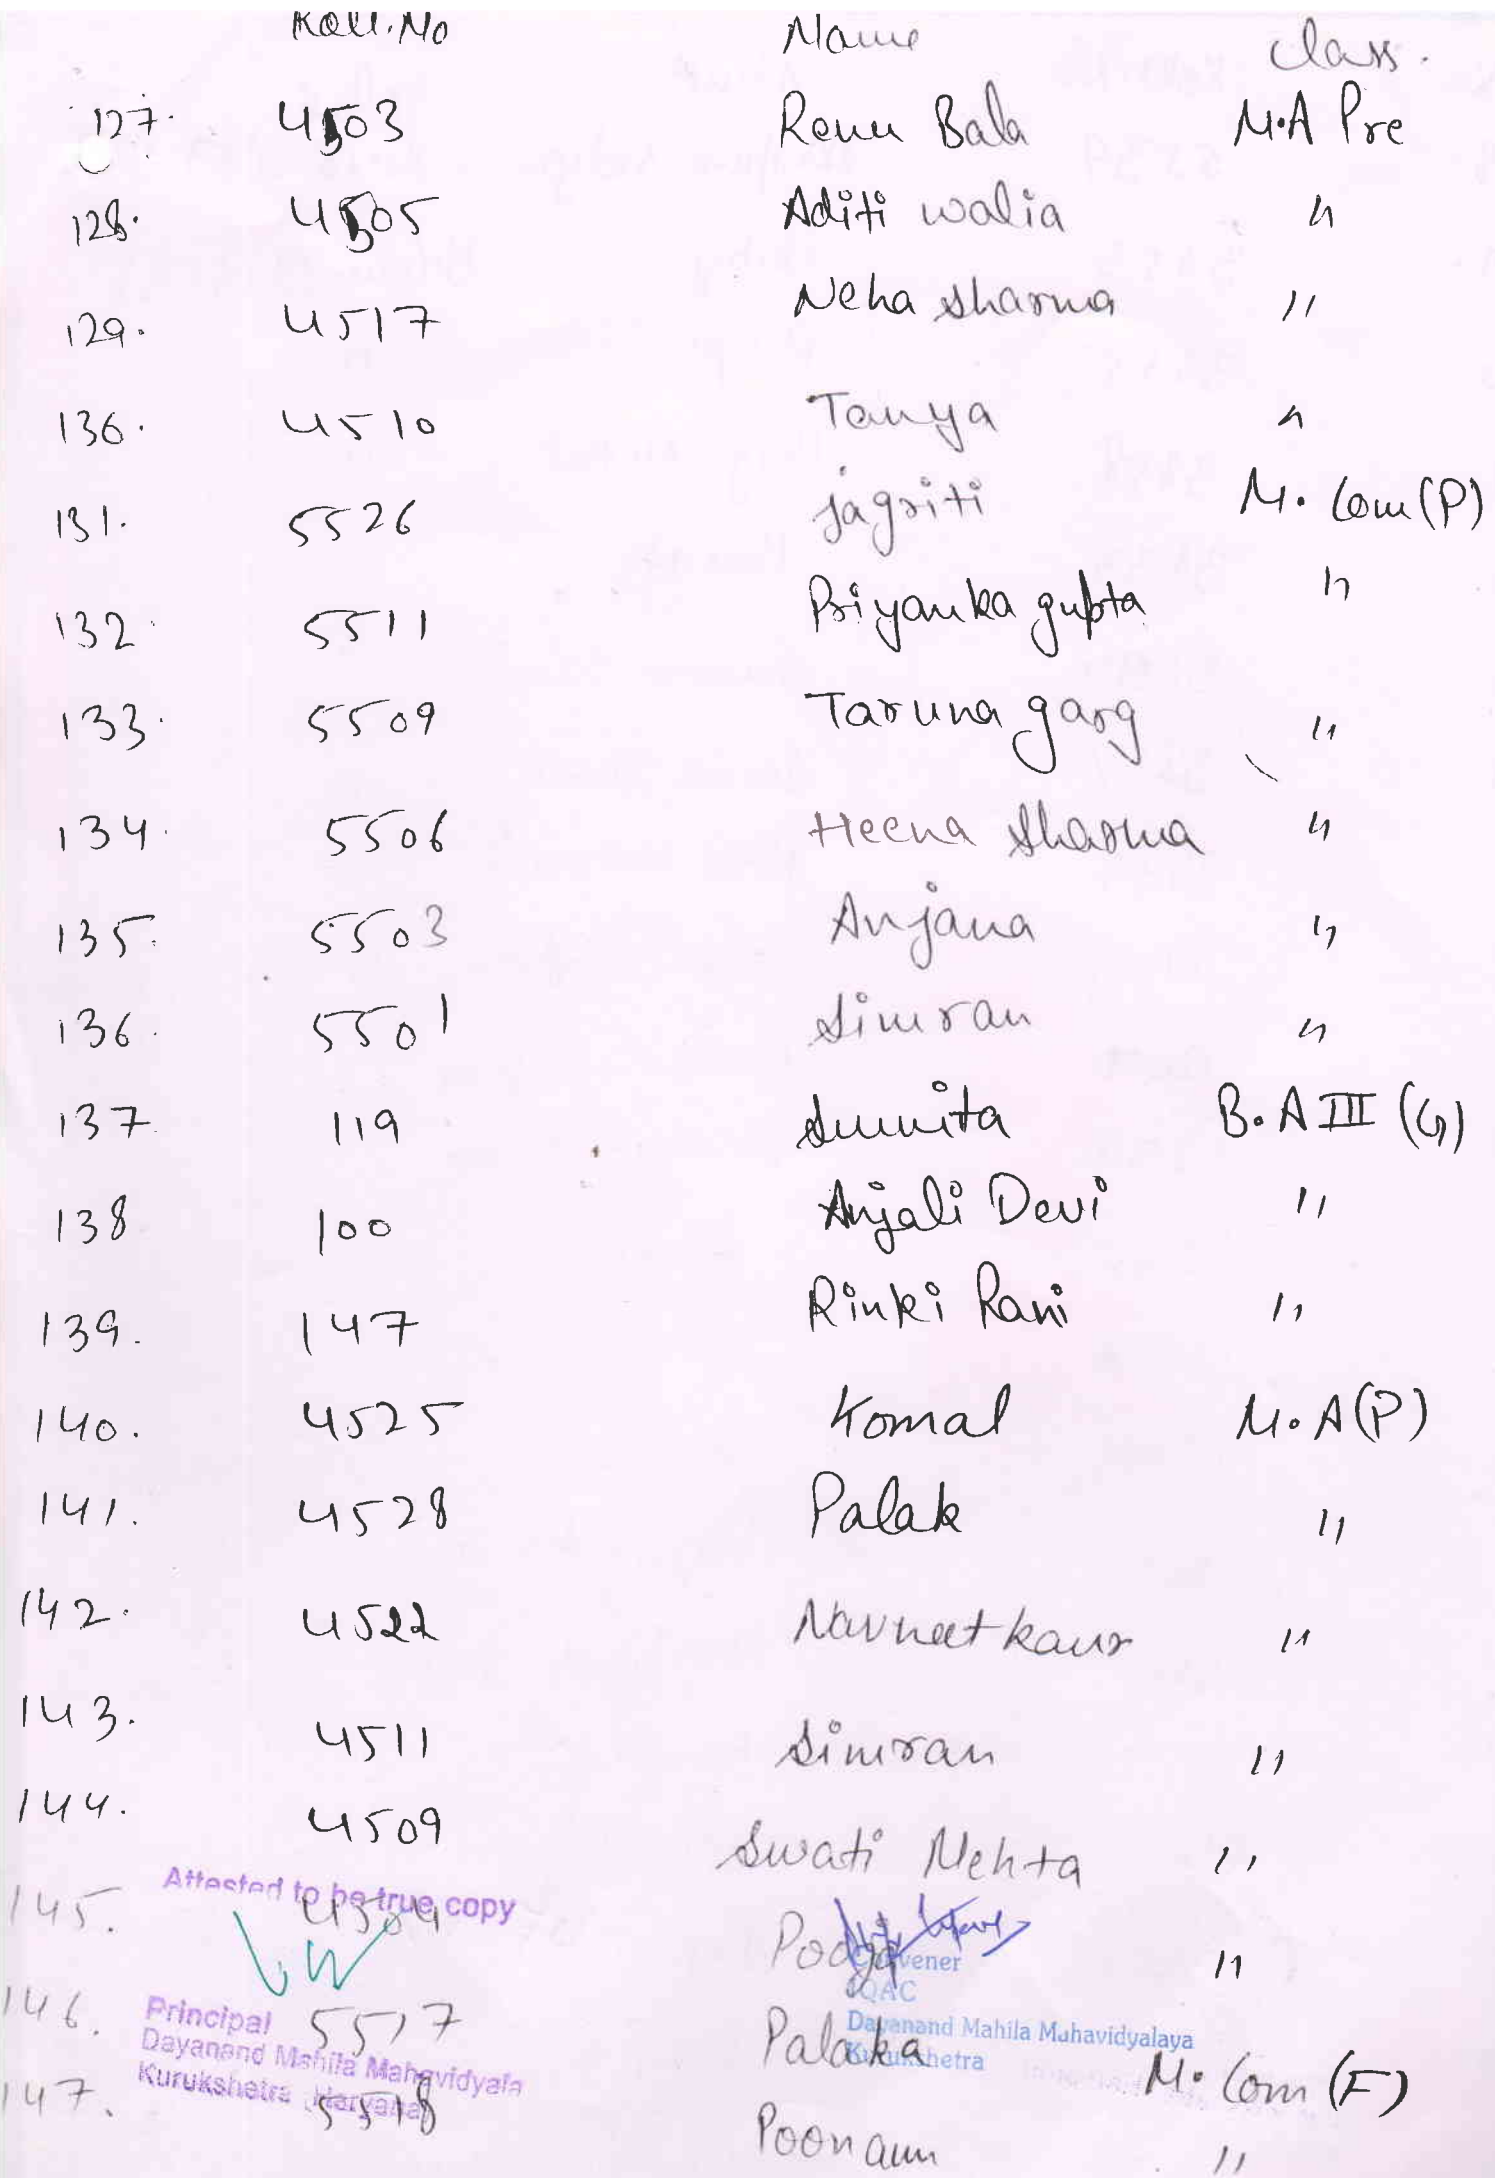 Roll.No Name Class.
127. 4503 Renu Bala M.A Pre
128. 4505 Aditi walia "
129. 4517 Neha sharma "
130. 4510 Tanya "
131. 5526 jagriti M. Com (P)
132. 5511 Priyanka gupta "
133. 5509 Taruna garg "
134. 5506 Heena sharma "
135. 5503 Anjana "
136. 5501 Simran "
137 119 Sunita B.A III (G)
138 100 Anjali Devi "
139. 147 Rinki Rani "
140. 4525 Komal M.A(P)
141. 4528 Palak "
142. 4522 Navneet kaur "
143. 4511 Simran "
144. 4509 Swati Mehta "
Attested to be true copy
145. 4504 Pooja "
Convener
IQAC
146. 5517 Palaka M. Com (F)
Principal
Dayanand Mahila Mahavidyala
Kurukshetra Haryana
Dayanand Mahila Mahavidyalaya
Kurukshetra
147. 5518 Poonam "